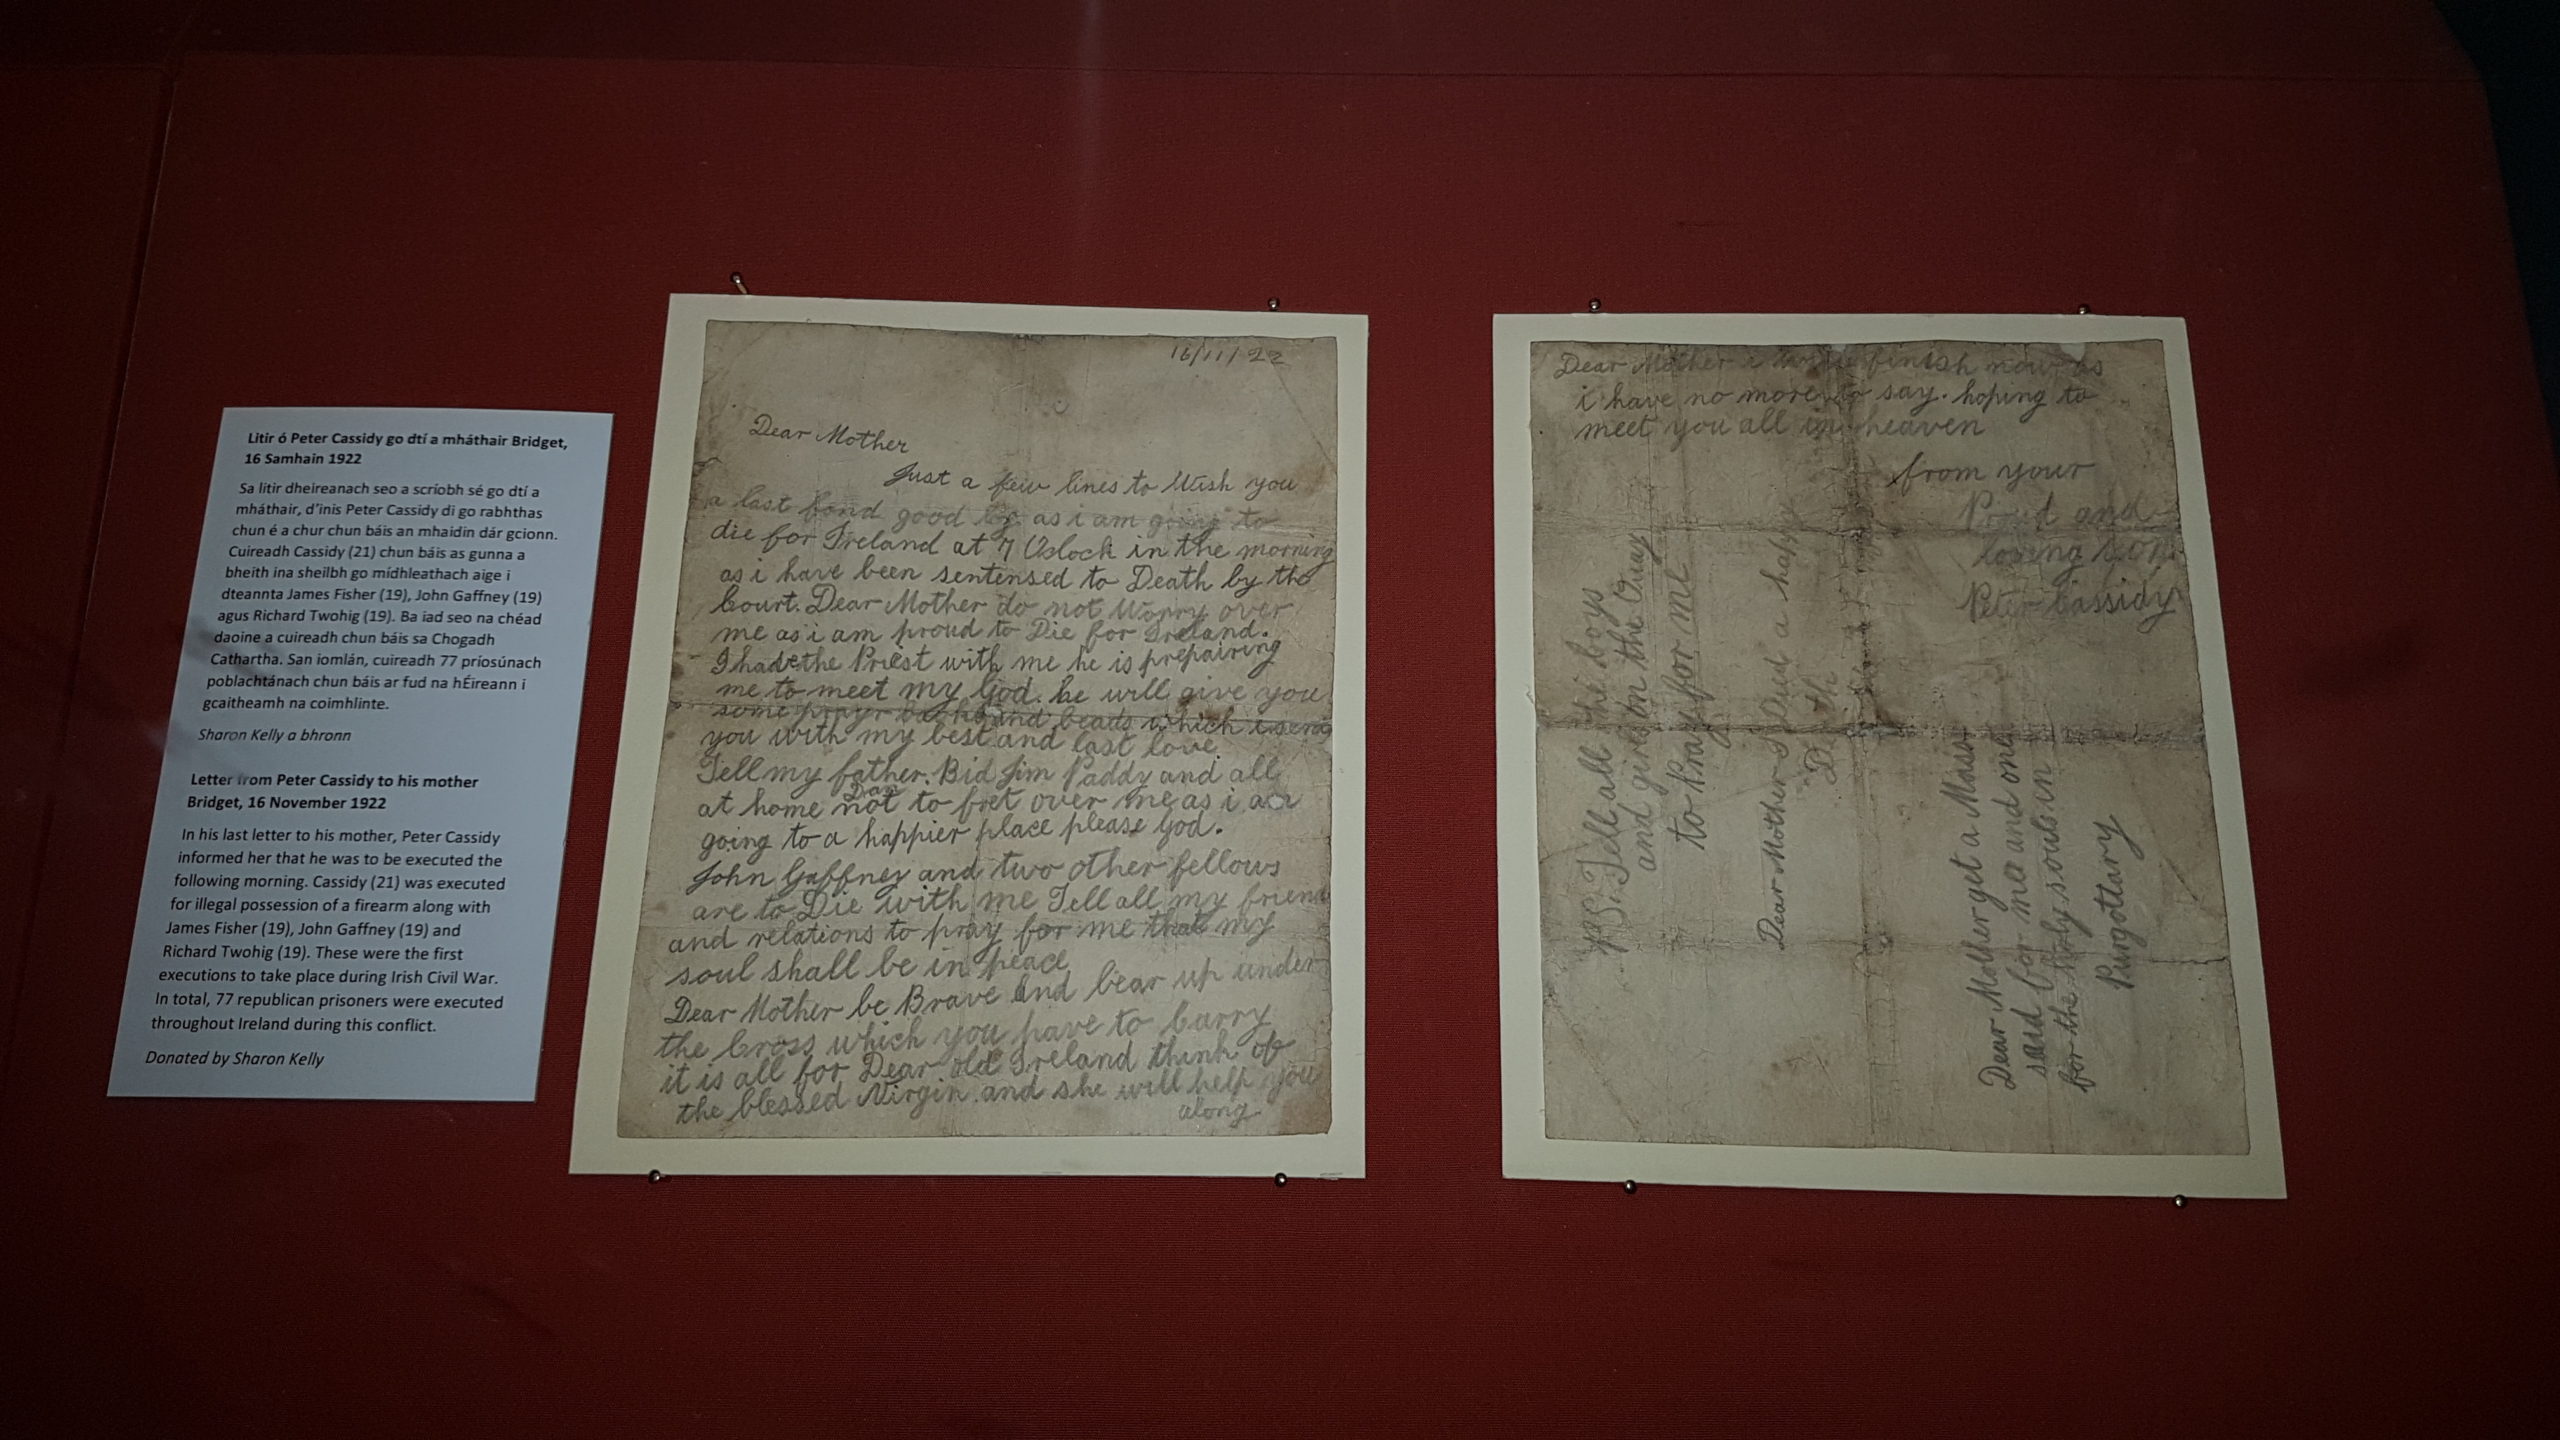 Litir ó Peter Cassidy go dtí a mháthair Bridget,
16 Samhain 1922
Sa litir dheireanach seo a scríobh sé go dtí a
mháthair, d'inis Peter Cassidy di go rabhthas
chun é a chur chun báis an mhaidin dár gcionn.
Cuireadh Cassidy (21) chun báis as gunna a
bheith ina sheilbh go mídhleathach aige i
dteannta James Fisher (19), John Gaffney (19)
agus Richard Twohig (19). Ba iad seo na chéad
daoine a cuireadh chun báis sa Chogadh
Cathartha. San iomlán, cuireadh 77 príosúnach
poblachtánach chun báis ar fud na hÉireann i
gcaitheamh na coimhlinte.
Sharon Kelly a bhronn
Letter from Peter Cassidy to his mother
Bridget, 16 November 1922
In his last letter to his mother, Peter Cassidy
informed her that he was to be executed the
following morning. Cassidy (21) was executed
for illegal possession of a firearm along with
James Fisher (19), John Gaffney (19) and
Richard Twohig (19). These were the first
executions to take place during Irish Civil War.
In total, 77 republican prisoners were executed
throughout Ireland during this conflict.
Donated by Sharon Kelly
16/11/22
Dear Mother
Just a few lines to Wish you
a last fond good by as i am going to
die for Ireland at 7 Oclock in the morning
as i have been sentensed to Death by the
Court. Dear Mother do not Worry over
me as i am proud to Die for Ireland.
I have the Priest with me he is prepairing
me to meet my God. he will give you
some prayr books and beads which i send
you with my best and last love
Tell my father. Bid Jim Paddy and all
at home not to fret over me as i am
going to a happier place please God.
John Gaffney and two other fellows
are to Die with me Tell all my friend
and relations to pray for me that my
soul shall be in peace
Dear Mother be Brave and bear up under
the Cross which you have to Carry
it is all for Dear old Ireland think of
the blessed Virgin and she will help you
along
Dear Mother i will finish now as
i have no more to say. hoping to
meet you all in heaven
from your
Proud and
loving son
Peter Cassidy
P.S. Tell all the boys
and girls on the Quay
to Pray for me
Dear Mother I Dies a happy
Death
Dear Mother get a Mass
said for me and one
for the holy souls in
Purgottary